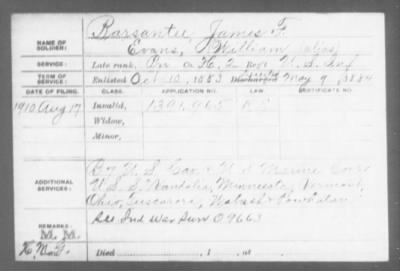 NAME OF SOLDIER: Rassantee, James F.
Evans, William (alias)
SERVICE: Late rank, Pvt Co. H, 2 Reg't U.S. Inf
TERM OF SERVICE: Enlisted Oct 10, 1883 Discharged Deserted May 9, 1884
DATE OF FILING. CLASS. APPLICATION NO. LAW. CERTIFICATE NO.
1910 Aug 17 Invalid, 1391,965
Widow,
Minor,
ADDITIONAL SERVICES: U.S. Cav. & U.S. Marine Corps
U.S.S. Wandolia, Minnesota, Vermont,
Ohio, Tuscarora, Wabash & Powhatan
See Ind War Surv 09663
REMARKS:
Died , 1 , at